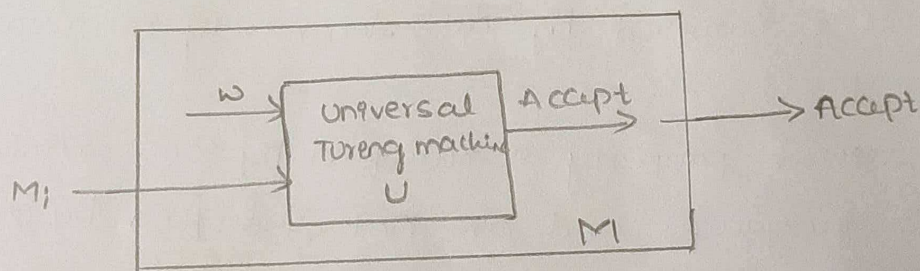 w
Universal
Tureng machin
U
Accept
Accept
Mi
M